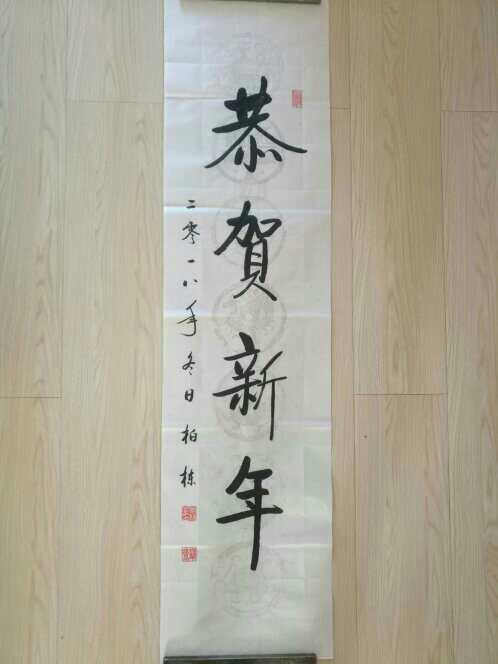 恭贺新年
二零一八年冬日柏栋